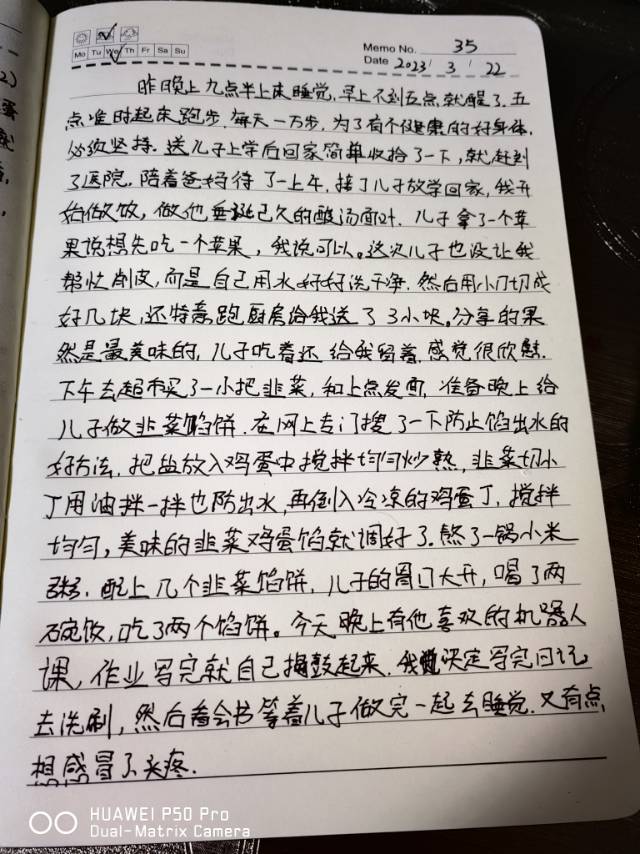 Memo No. 35
Mo Tu We Th Fr Sa Su
Date 2023 / 3 / 22
昨晚上九点半上床睡觉,早上不到五点就醒了.五
点准时起来跑步.每天一万步,为了有个健康的好身体,
必须坚持.送儿子上学后回家简单收拾了一下,就赶到
了医院,陪着爸妈待了一上午,接了儿子放学回家,我开
始做饭,做他垂涎已久的酸汤面叶.儿子拿了一个苹
果说想先吃一个苹果,我说可以。这次儿子也没让我
帮忙削皮,而是自己用水好好洗干净.然后用小刀切成
好几块,还特意跑厨房给我送了3小块。分享的果
然是最美味的,儿子吃着还给我留着,感觉很欣慰.
下午去超市买了一小把韭菜,和上点发面,准备晚上给
儿子做韭菜馅饼.在网上专门搜了一下防止馅出水的
好方法,把盐放入鸡蛋中搅拌均匀炒熟,韭菜切小
丁用油拌一拌也防出水,再倒入冷凉的鸡蛋丁,搅拌
均匀,美味的韭菜鸡蛋馅就调好了.熬了一锅小米
粥,配上几个韭菜馅饼,儿子的胃口大开,喝了两
碗饭,吃了两个馅饼。今天晚上有他喜欢的机器人
课,作业写完就自己捣鼓起来.我决定写完日记
去洗刷,然后看会书等着儿子做完一起去睡觉.又有点
想感冒了,头疼.
HUAWEI P50 Pro
Dual-Matrix Camera